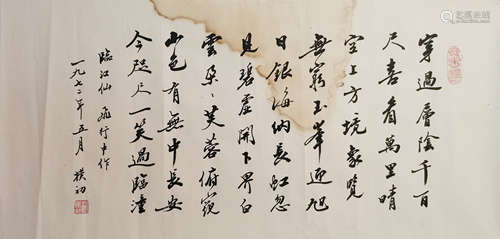 穿過層陰千百
尺喜看萬里晴
空上方境象覽
無窮玉峯迎旭
日銀海納長虹忽
見碧虛開下界白
雲朵〻芙蓉俯窺
山色有無中長安
今咫尺一笑過臨潼
臨江仙 飛行中作
一九七二年五月 樸初